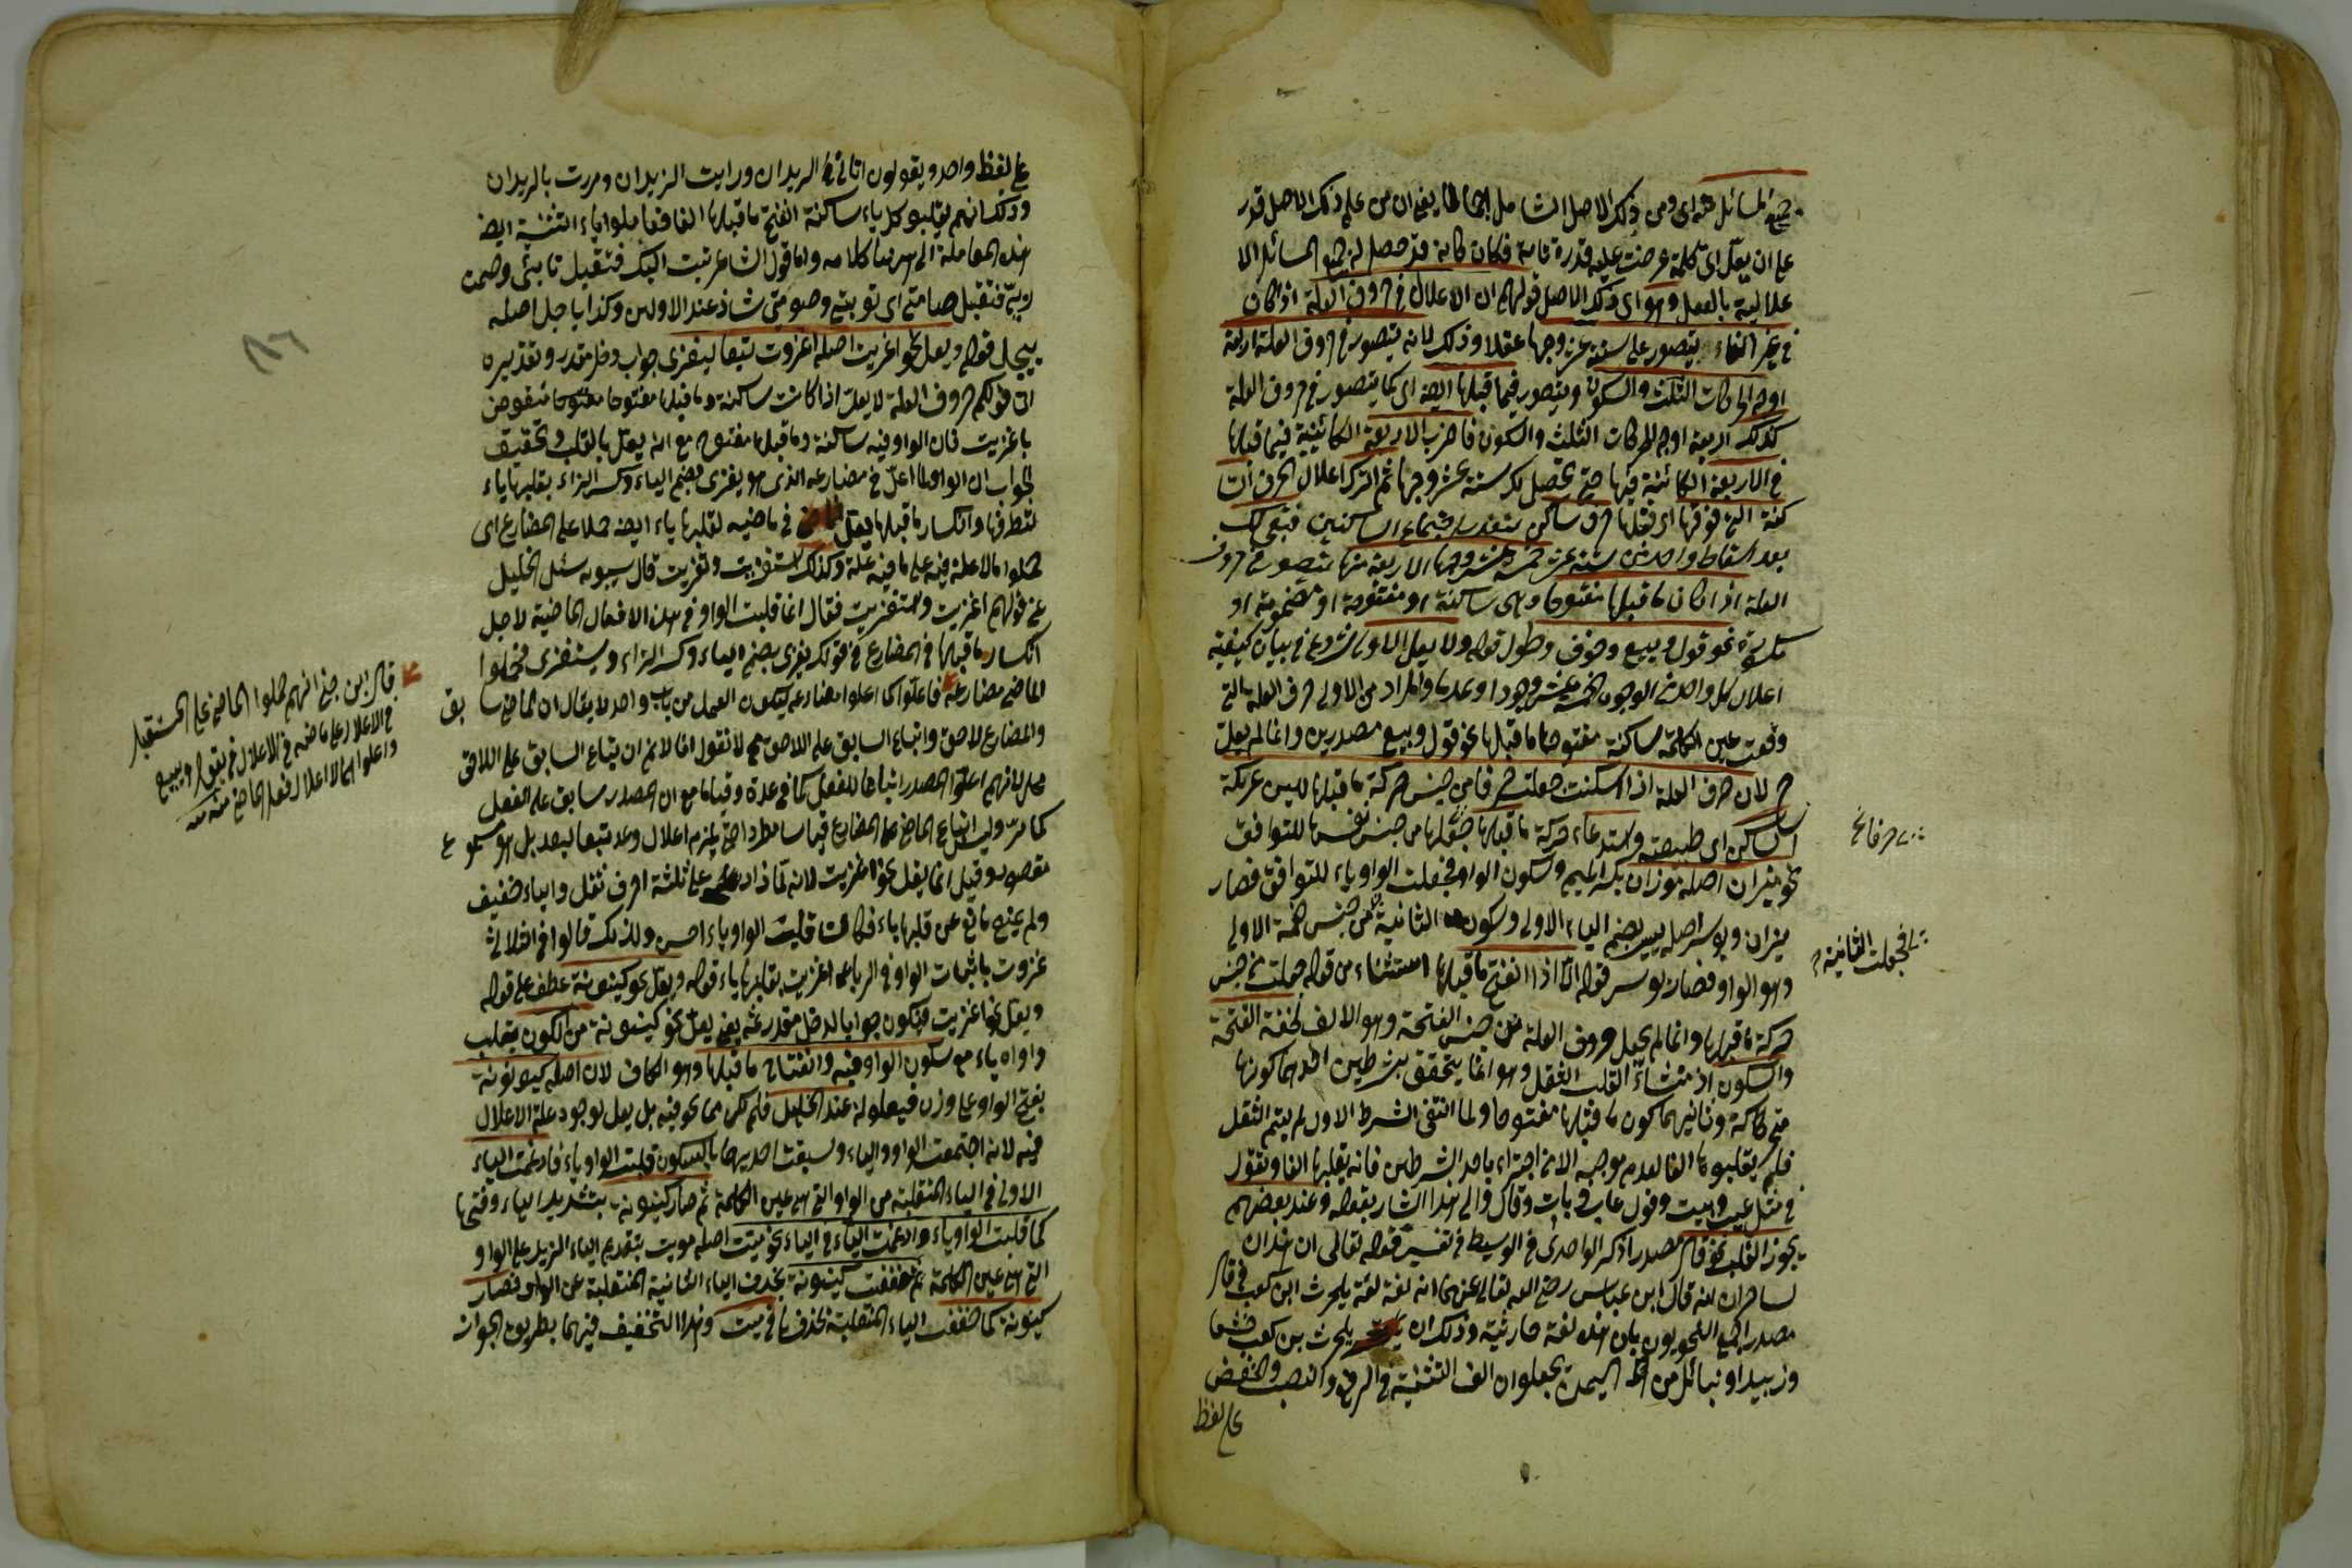 جميع المسائل منه اى ومن ذلك الاصل الشامل اجمالا يعنى ان من علم ذلك الاصل قدر
على ان يعل اى كلمة عرضت عليه قدرة تامة فكان كانه قد حصل له جميع المسائل الا
علالية بالفعل وهو اى ذلك الاصل قولهم ان الاعلال فى حروف العلة اذا كان
فى غير الفاء يتصور على ستة عشر وجها عقلا وذلك لانه يتصور فى حروف العلة اربعة
اوجه الحركات الثلث والسكون ويتصور فيما قبلها ايضا اى كما يتصور فى حروف العلة
كذلك اربعة اوجه الحركات الثلث والسكون فاضرب الاربعة الكائنة فيما قبلها
فى الاربعة الكائنة فيها حتى يحصل لك ستة عشر وجها ثم اترك اعلال الحرف السا
كنة التى فوقها اى قبلها حرف ساكن لتعذر اجتماع الساكنين فبقى لك
بعد اسقاط واحد من ستة عشر خمسة عشر وجها الاربعة منها يتصور فى حروف
العلة اذا كان ما قبلها مفتوحا وهى ساكنة او مفتوحة او مضمومة او
مكسورة نحو قول وبيع وخوف وطول قوله ولا يعل الاولى شروع فى بيان كيفية
اعلال كل واحد من الوجوه الخمسة عشر وجودا وعدما والمراد من الاولى حرف العلة التى
وقعت عين الكلمة ساكنة مفتوحا ما قبلها نحو قول وبيع مصدرين وانما لم يعل
لان حرف العلة اذا اسكنت جعلت من جنس حركة ما قبلها للين عريكة
الساكن اى طبيعته واستدعاء حركة ما قبلها جعلها من جنس نفسها للتوافق
نحو ميزان اصله موزان بكسر الميم وسكون الواو فجعلت الواو ياء للتوافق فصار
ميزان ويوسر اصله ييسر بضم الياء الاولى وسكون الثانية من جنس ضمة الاولى
وهو الواو فصار يوسر قوله الا اذا انفتح ما قبلها استثناء من قوله جعلت من جنس
حركة ما قبلها وانما لم يجعل حروف العلة من جنس الفتحة وهو الالف لخفة الفتحة
والسكون اذ منشأ القلب الثقل وهو انما يتحقق بشرطين احدهما كونها
متحركة وثانيهما كون ما قبلها مفتوحا ولما انتفى الشرط الاول لم يتم الثقل
فلم يقلبوها الفا لعدم موجبه الا من اجتزاء باحد الشرطين فانه يقلبها الفا ويقول
فى مثل عيب وبيت وقول عاب وبات وقال والى هذا اشار بقوله وعند بعضهم
يجوز القلب نحو قال مصدرا ذكر الواحدى فى الوسيط فى تفسير قوله تعالى ان هذان
لساحران انه قال ابن عباس رضى الله تعالى عنهما انه لغة بلحرث ابن كعب
مصدر اجمع النحويون بان هذه لغة حارثية وذلك ان بلحرث بن كعب وخثعما
وزبيدا وقبائل من اهل اليمن يجعلون الف التثنية فى الرفع والنصب والخفض
على لفظ
حرفا صح
فجعلت الثانية
على لفظ واحد ويقولون اتانى الزيدان ورايت الزيدان ومررت بالزيدان
وذلك انهم يقلبو كل ياء ساكنة انفتح ما قبلها الفا فعاملوا ياء التثنية ايضا
هذه المعاملة الى ههنا كلامه واما قول الشاعر تبت اليك فتقبل تابتى وصمت
ربى فتقبل صامتى اى توبتى وصومتى شاذ عند الاولين وكذا ياجل اصله
ييجل قوله ويعل نحو اغزيت اصله اغزوت تبعا ليغزى جواب دخل مقدر وتقديره
ان قولكم حروف العلة لا يعل اذا كانت ساكنة وما قبلها مفتوحا منقوض
باغزيت فان الواو فيه ساكنة وما قبلها مفتوح مع انه يعل بالقلب وتحقيق
الجواب ان الواو لما اعل فى مضارعه الذى هو يغزى بضم الياء وكسر الزاء بقلبها ياء
لتطرفها وانكسار ما قبلها يعل فى ماضيه بقلبها ياء ايضا حملا على المضارع اى
حملوا ما لا علة فيه على ما فيه علة وكذلك استغزيت وتغزيت قال سيبويه سئل الخليل
عن قولهم اغزيت واستغزيت فقال انما قلبت الواو فى هذه الافعال الماضية لاجل
انكسار ما قبلها فى المضارع فى قولك يغزى بضم الياء وكسر الزاء ويستغزى فحملوا
الماضى مضارعه فاعلوا كما اعلوا مضارعه ليكون العمل من باب واحد لا يقال ان الماضى سابق
والمضارع لاحق واتباع السابق على اللاحق لا نقول انا لا نم ان اتباع السابق على اللاحق
محال لانهم اعلوا المصدر اتباعا للفعل كما فى عدة وقياما مع ان المصدر سابق على الفعل
كما مر وليس اتباع الماضى على المضارع قياسا مطردا حتى يلزم اعلال وعد تبعا ليعد بل هو مسموع
مقصور وقيل انما يعل نحو اغزيت لانه لما زاد على ثلثة احرف ثقل والياء خفيف
ولم يمنع مانع عن قلبها ياء فكانت قلبت الواو ياء احسن ولذلك قالوا فى الثلاثى
غزوت باثبات الواو وفى الرباعى اغزيت بقلبها ياء قوله ويعل نحو كينونة عطف على قوله
ويعل نحو اغزيت فيكون جوابا لدخل مقدر مثله يعنى يعل نحو كينونة من الكون بقلب
واواه ياء مع سكون الواو فيه وانفتاح ما قبلها وهو الكاف لان اصله كيونونة
بفتح الواو على وزن فيعلولة عند الخليل فلم يكن مما نحن فيه بل يعل لوجود علة الاعلال
فيه لانه اجتمعت الواو والياء وسبقت احديهما بالسكون قلبت الواو ياء فادغمت الياء
الاولى فى الياء المنقلبة من الواو التى هى عين الكلمة ثم صار كينونة بتشديد الياء وفتحها
كما قلبت الواو ياء وادغمت الياء فى الياء نحو ميت اصله ميوت بتقديم الياء الزيد على الواو
التى هى عين الكلمة ثم خففت كينونة بحذف الياء الثانية المنقلبة عن الواو فصار
كينونة كما خففت الياء المنقلبة بحذفها فى ميت وهذا التخفيف فيهما بطريق الجواز
قال ابن جنى انهم حملوا الماضى على المستقبل